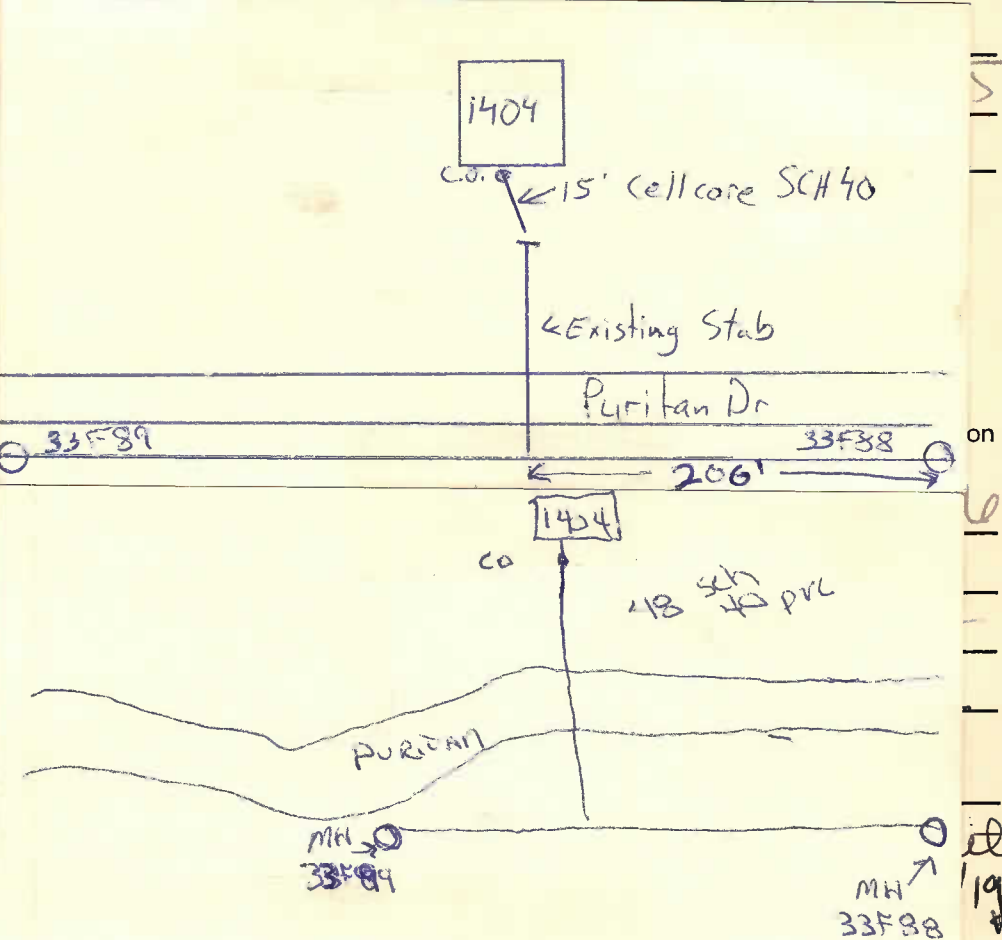 1404
C.O.
15' Cellcore SCH 40
Existing Stab
Puritan Dr
33F89
33F88
on
206'
1404
CO
48 sch 40 PVC
PURITAN
MH
33F89
MH
33F88